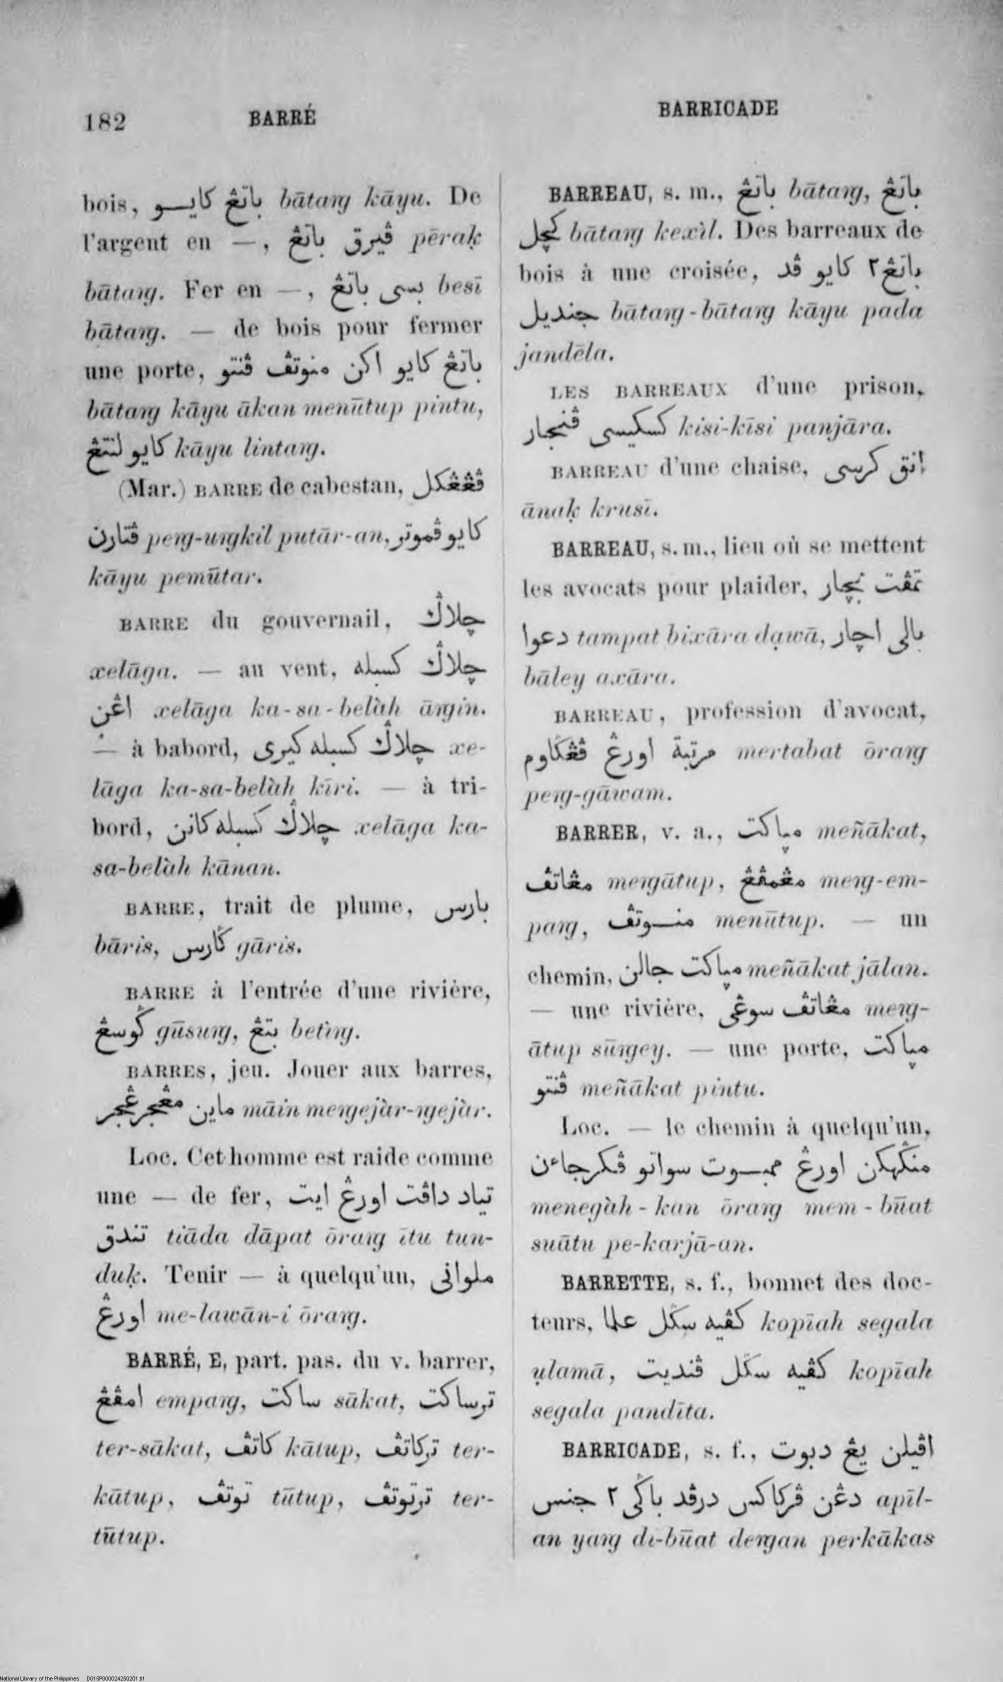 182 BARRÉ BARRICADE
bois, باتڠ كايو bātaŋ kāyu. De
l'argent en — , ڤيرق باتڠ pēraḳ
bātaŋ. Fer en — , بسى باتڠ besī
bātaŋ. — de bois pour fermer
une porte, باتڠ كايو اكن منوتڤ ڤنتو
bātaŋ kāyu ākan menūtup pintu,
كايو لنتڠ kāyu lintaŋ.
(Mar.) BARRE de cabestan, ڤڠڠكل
ڤتارن peŋ-uŋkil putār-an, كايو ڤموتر
kāyu pemūtar.
BARRE du gouvernail, چلاݢ
xelāga. — au vent, چلاݢ كسبله
اڠن xelāga ka-sa-belàh āŋin.
— à babord, چلاݢ كسبله كيرى xe-
lāga ka-sa-belàh kīri. — à tri-
bord, چلاݢ كسبله كانن xelāga ka-
sa-belàh kānan.
BARRE, trait de plume, بارس
bāris, ݢارس gāris.
BARRE à l'entrée d'une rivière,
ݢوسڠ gūsuŋ, بتڠ betiŋ.
BARRES, jeu. Jouer aux barres,
ماين مڠجرڠجر māin meŋejàr-ŋejàr.
Loc. Cet homme est raide comme
une — de fer, تياد داڤت اورڠ ايت
تندق tiāda dāpat ōraŋ ītu tun-
duḳ. Tenir — à quelqu'un, ملوانى
اورڠ me-lawān-i ōraŋ.
BARRÉ, E, part. pas. du v. barrer,
امڤڠ empaŋ, ساكت sākat, ترساكت
ter-sākat, كاتڤ kātup, تركاتڤ ter-
kātup, توتڤ tūtup, ترتوتڤ ter-
tūtup.
BARREAU, s. m., باتڠ bātaŋ, باتڠ
كچل bātaŋ kexìl. Des barreaux de
bois à une croisée, باتڠ٢ كايو ڤد
جنديل bātaŋ-bātaŋ kāyu pada
jandēla.
LES BARREAUX d'une prison,
كسكيسى ڤنجار kisi-kīsi panjāra.
BARREAU d'une chaise, انق كرسى
ānaḳ krusī.
BARREAU, s. m., lieu où se mettent
les avocats pour plaider, تمڤت بچار
دعوا tampat bixāra dạwā, بالى اچار
bāley axāra.
BARREAU, profession d'avocat,
مرتبة اورڠ ڤڠݢاوم mertabat ōraŋ
peŋ-gāwam.
BARRER, v. a., مڽاكت meñākat,
مڠاتڤ meŋātup, مڠمڤڠ meŋ-em-
paŋ, منوتڤ menūtup. — un
chemin, مڽاكت جالن meñākat jālan.
— une rivière, مڠاتڤ سوڠى meŋ-
ātup sūŋey. — une porte, مڽاكت
ڤنتو meñākat pintu.
Loc. — le chemin à quelqu'un,
منݢهكن اورڠ ممبوت سواتو ڤكرجاءن
menegàh-kan ōraŋ mem-būat
suātu pe-karjā-an.
BARRETTE, s. f., bonnet des doc-
teurs, كڤيه سݢل علما kopīah segala
ụlamā, كڤيه سݢل ڤنديت kopīah
segala pandīta.
BARRICADE, s. f., اڤيلن يڠ دبوت
دڠن ڤركاكس درڤد باݢى٢ جنس apīl-
an yaŋ di-būat deŋan perkākas
National Library of the Philippines